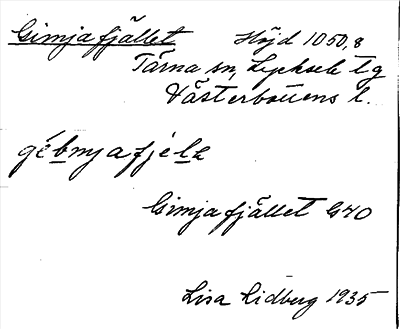 Gimjafjället Höjd 1050,8
Tärna sn, Lycksele tg
Västerbottens l.
Gimjafjället G40
Lisa Lidberg 1935